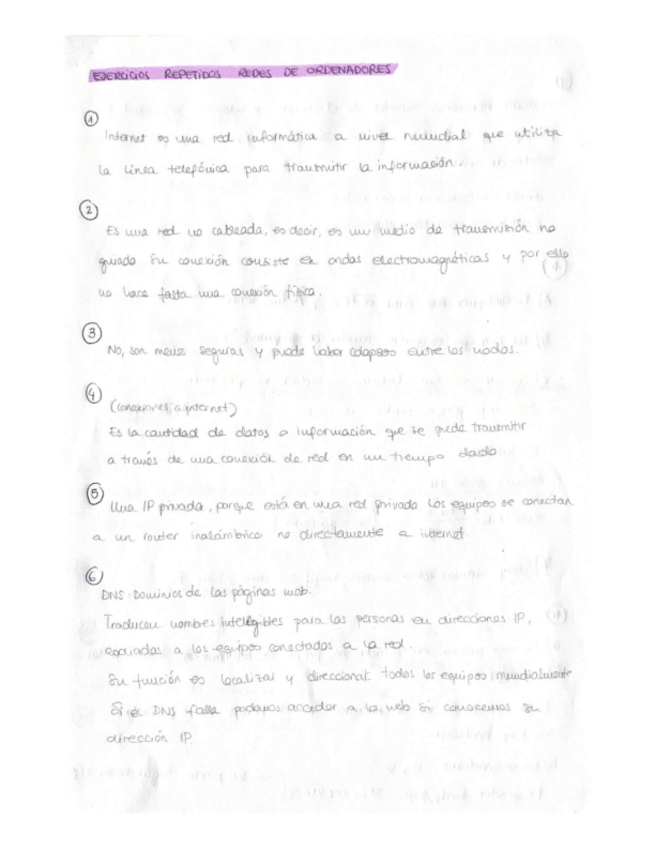 EJERCICIOS REPETIDOS REDES DE ORDENADORES
1
Internet es una red informática a nivel mundial que utiliza
la línea telefónica para transmitir la información.
2
Es una red no cableada, es decir, es un medio de transmisión no
guiado. Su conexión consiste en ondas electromagnéticas y por ello
no hace falta una conexión física.
3
No, son menos seguras y puede haber colapsos entre los nodos.
4
(conexiones a internet)
Es la cantidad de datos o información que se puede transmitir
a través de una conexión de red en un tiempo dado
5
Una IP privada, porque está en una red privada. Los equipos se conectan
a un router inalámbrico no directamente a internet.
6
DNS: Dominios de las páginas web.
Traducen nombres inteligibles para las personas en direcciones IP,
asociadas a los equipos conectados a la red.
Su función es localizar y direccionar todos los equipos mundialmente
Si el DNS falla podemos acceder a la web si conocemos su
dirección IP.